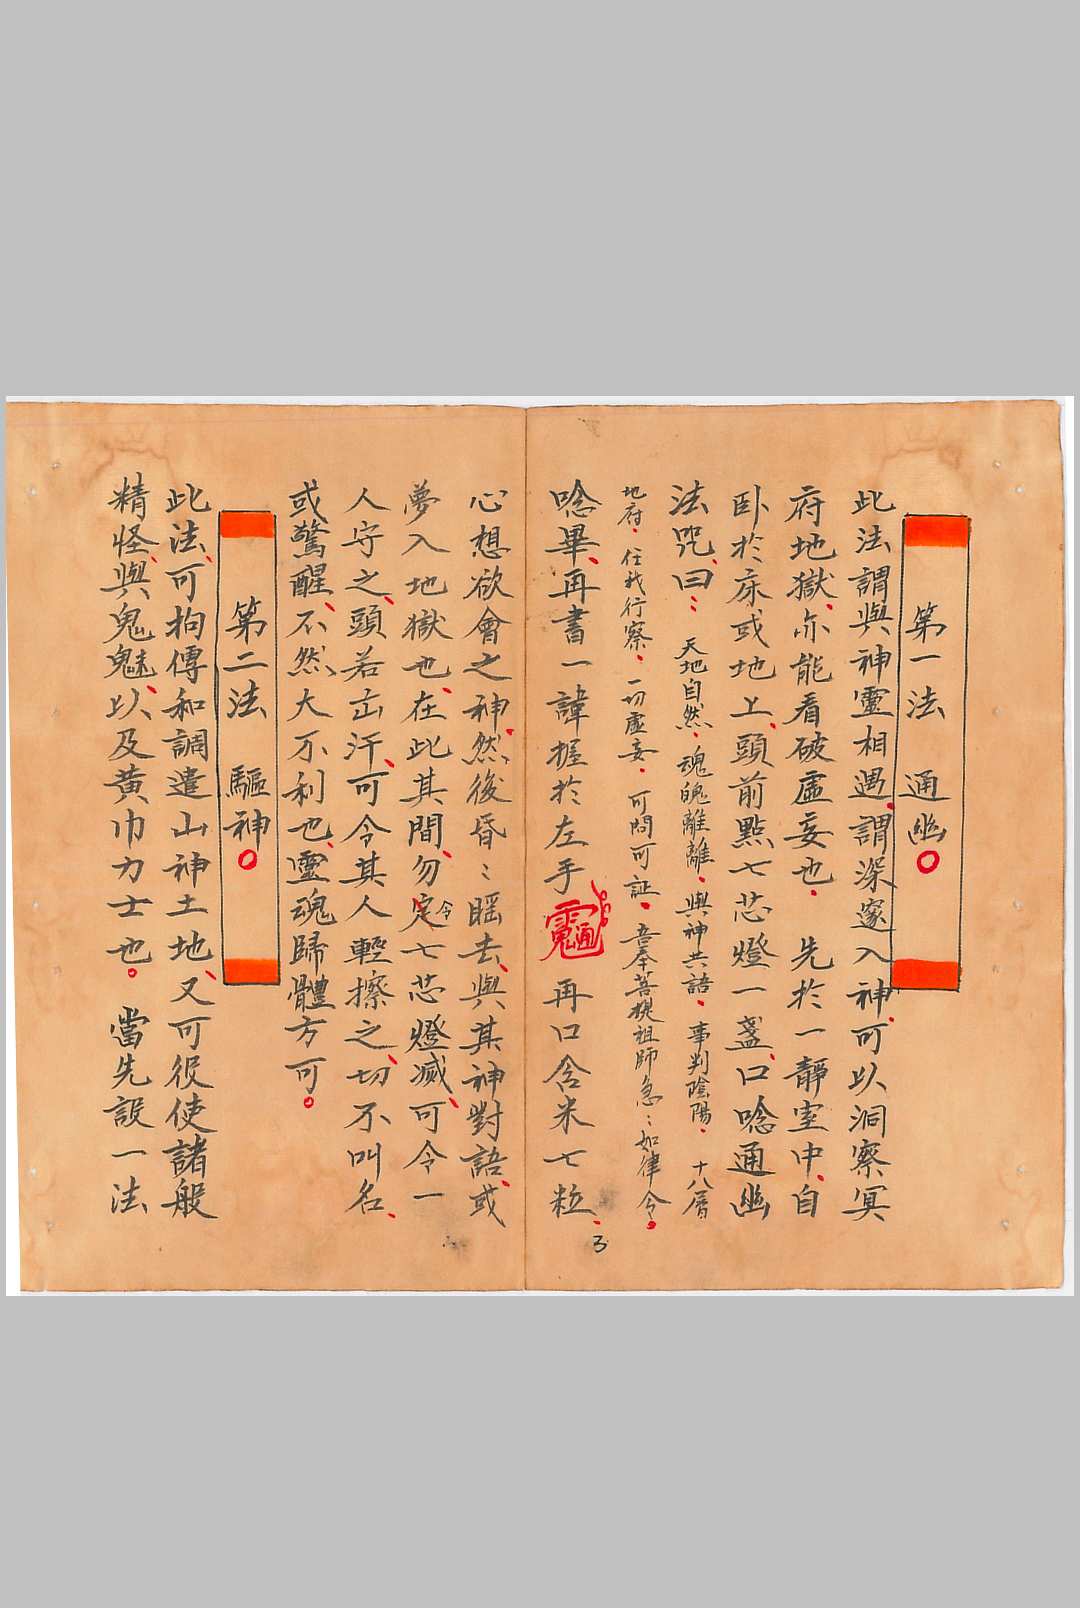 第一法 通幽
此法謂與神靈相遇、謂深邃入神、可以洞察冥
府地獄、亦能看破虛妄也、先於一靜室中、自
卧於床或地上、頭前點七芯燈一盞、口唸通幽
法咒、曰：天地自然、魂魄離離、與神共語、事判陰陽、十八層
地府、任我行察、一切虛妄、可問可証、吾奉菩提祖師急：如律令。
唸畢、再書一諱握於左手 再口含米七粒、
心想欲會之神、然後昏：瞌去、與其神對語、或
夢入地獄也、在此其間、勿令七芯燈滅、可令一
人守之、頭若出汗、可令其人輕擦之、切不叫名、
或驚醒、不然大不利也、靈魂歸體方可。
第二法 驅神
此法、可拘傳和調遣山神土地、又可役使諸般
精怪、與鬼魅、以及黄巾力士也。當先設一法
3